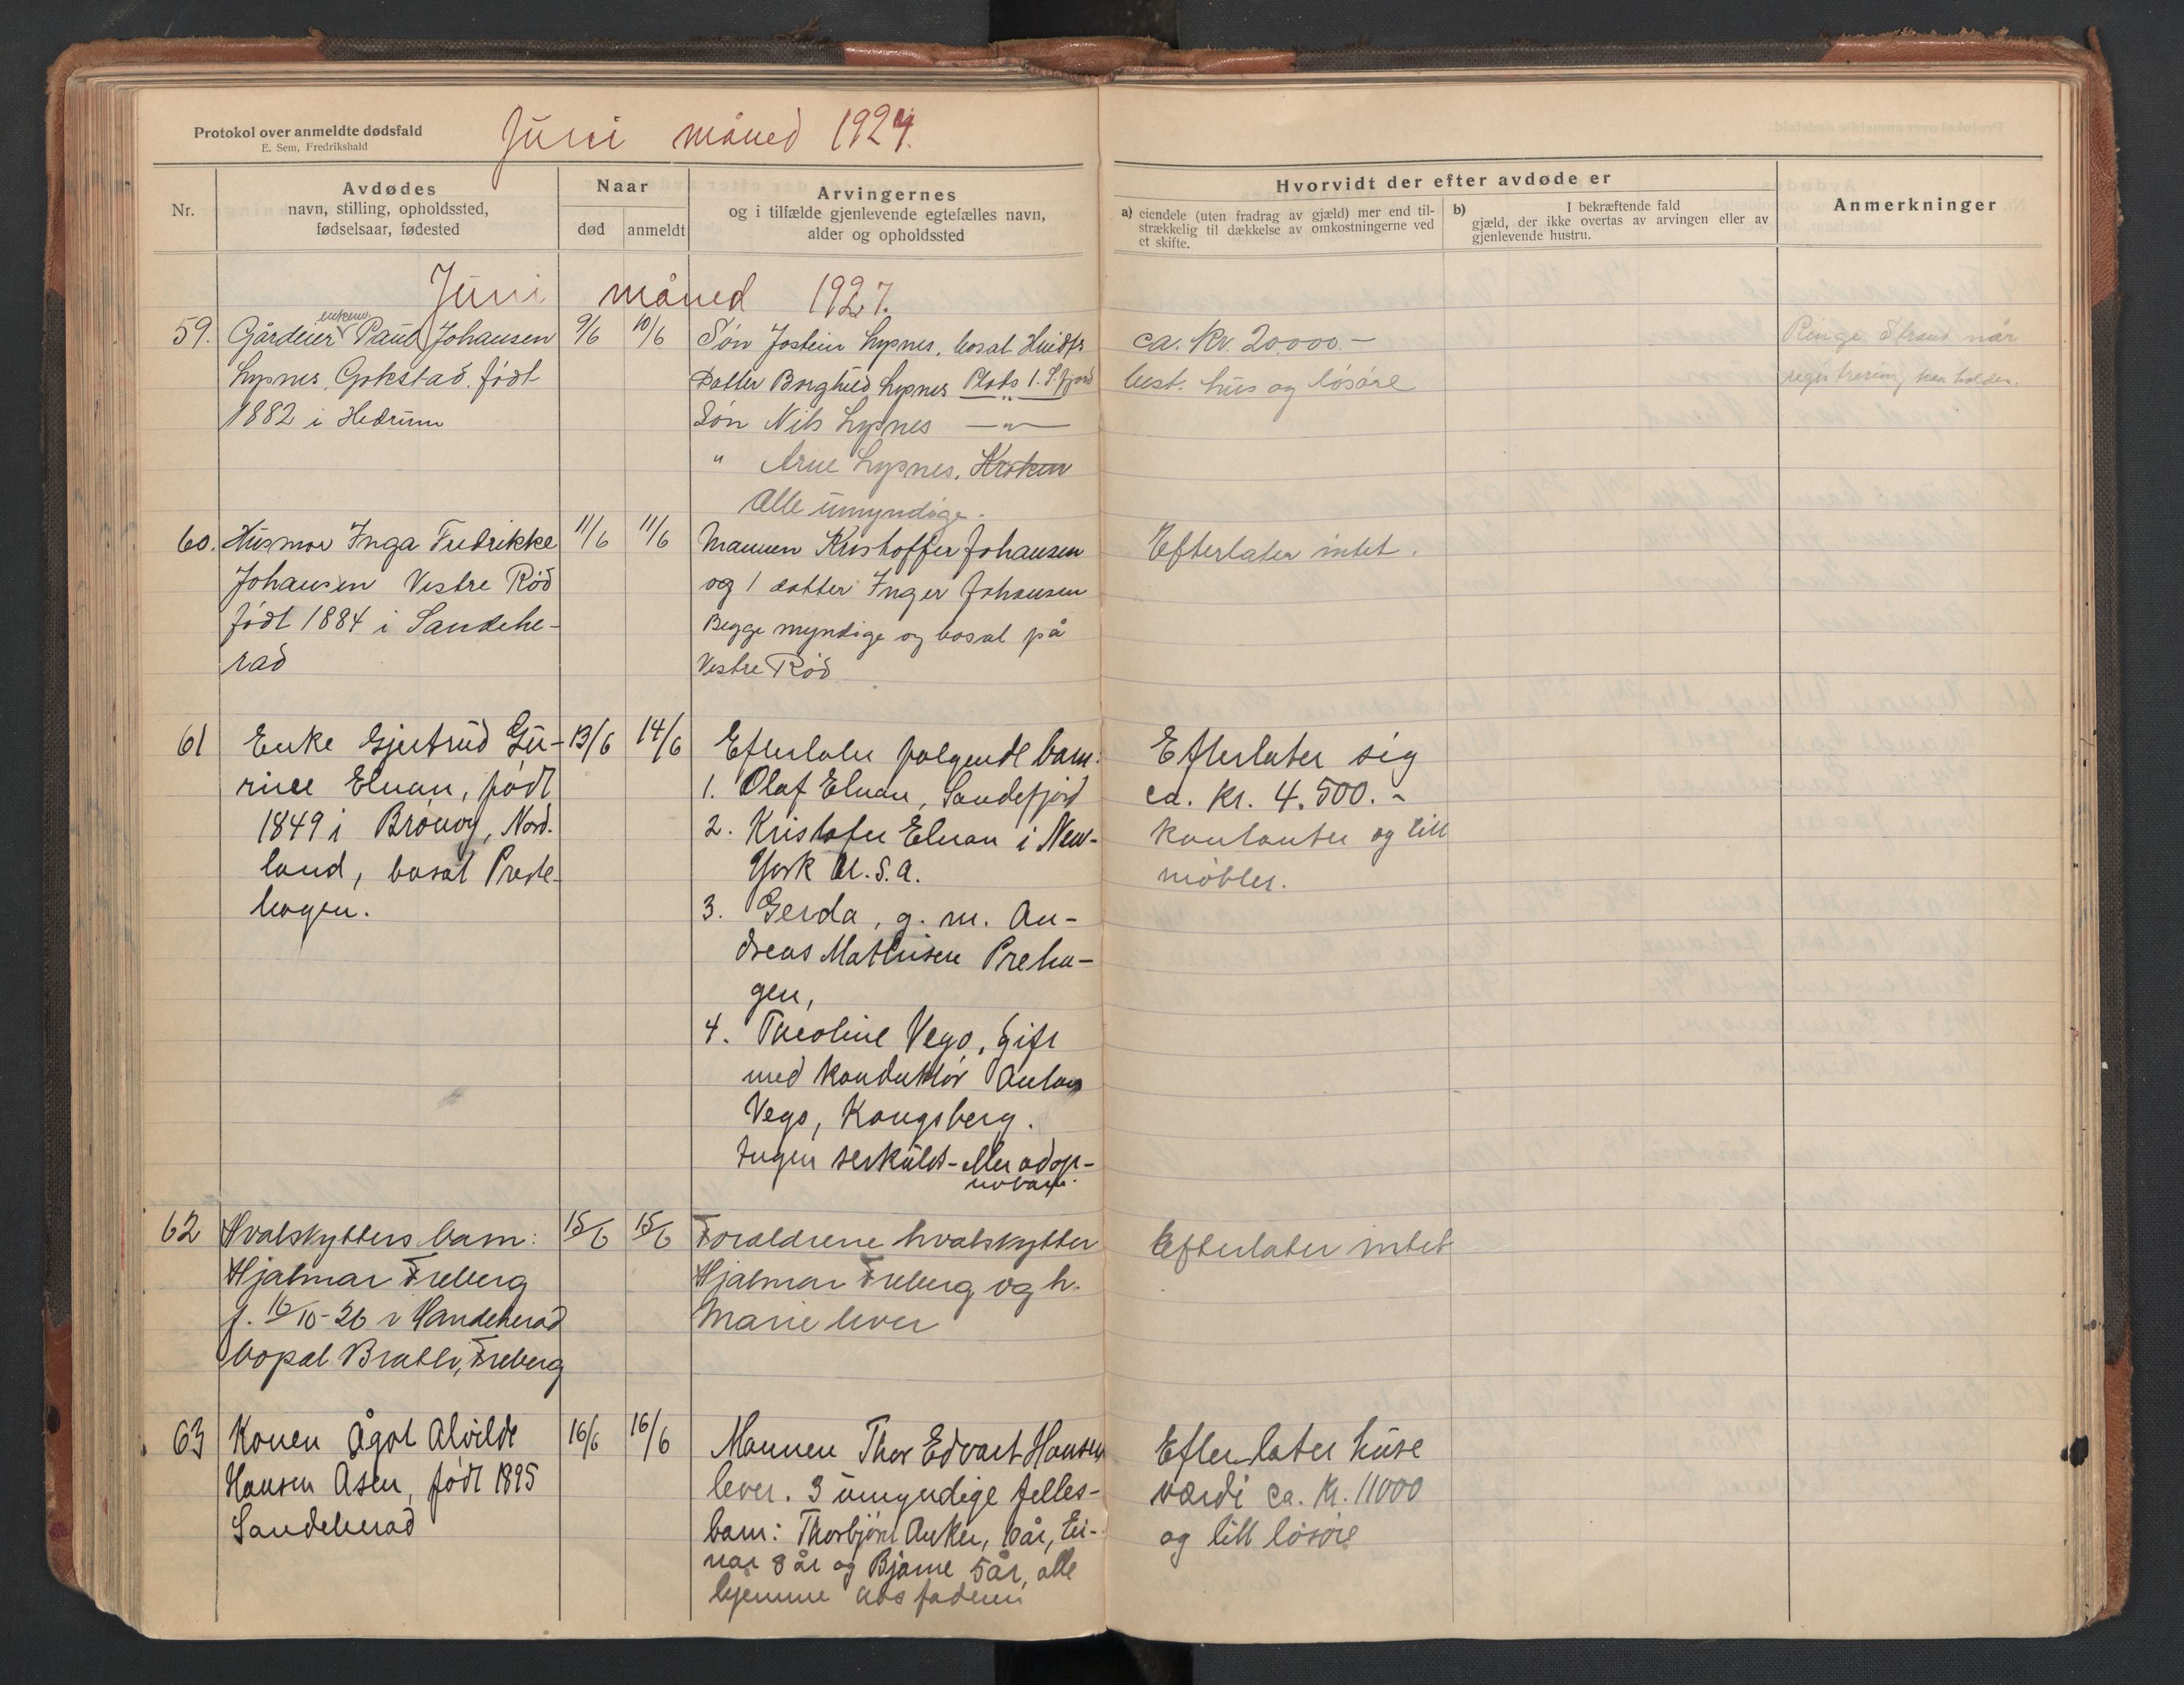 Protokol over anmeldte dødsfald
E. Sem, Fredrikshald
Juni måned 1927.
Nr.
Avdødes
navn, stilling, opholdssted,
fødselsaar, fødested
Naar
død
anmeldt
Arvingernes
og i tilfælde gjenlevende egtefælles navn,
alder og opholdssted
Hvorvidt der efter avdøde er
a) eiendele (uten fradrag av gjæld) mer end til-
strækkelig til dækkelse av omkostningerne ved
et skifte.
b) I bekræftende fald
gjæld, der ikke overtas av arvingen eller av
gjenlevende hustru.
Anmerkninger
Juni måned 1927.
59.
Gårdeier enkem. Paul Johansen
Lysnes, Gokstad, født
1882 i Hedrum
9/6
10/6
Søn Jostein Lysnes, bosat
Datter Borghild Lysnes Plads 1. S.fjord
Søn Nils Lysnes — " —
" Arne Lysnes, Kroken
Alle umyndige.
ca. kr. 20.000.-
best. hus og løsøre
Ringe Strand når
registrering kan holdes.
60.
Husmor Inga Fredrikke
Johansen Vestre Rød
født 1884 i Sandehe-
rad
11/6
11/6
Mannen Kristoffer Johansen
og 1 datter Inger Johansen
Begge myndige og bosat på
Vestre Rød
Efterlater intet.
61
Enke Gjertrud Gu-
rine Elvan, født
1849 i Brönöy, Nord.
land, bosat Preste-
hagen.
13/6
14/6
Efterlater følgende barn:
1. Olaf Elvan, Sandefjord
2. Kristofer Elvan i New-
York U.S.A.
3. Gerda, g. m. An-
dreas Mathisen Preha-
gen,
4. Theoline Vego, gift
med konduktör Anton
Vego, Kongsberg.
Ingen serkuld- eller adop-
tivbarn.
Efterlater sig
ca. kr. 4.500.-
kontanter og litt
möbler.
62
Hvalskytters barn:
Hjalmar Freberg
f. 16/10-26 i Sandeherad
bopæl Bratli, Freberg
15/6
15/6
Foraldrene hvalskytter
Hjalmar Freberg og h.
Marie lever
Efterlater intet
63
Konen Ågot Alvilde
Hansen Åsen, født 1895
Sandeherad
16/6
16/6
Mannen Thor Edvart Hansen
lever. 3 umyndige felles-
barn: Thorbjörn Anker, 10 år, Ei-
nar 8 år og Bjarne 5 år, alle
hjemme hos faderen
Efterlater huse
værdi ca. kr. 11000
og litt løsöre